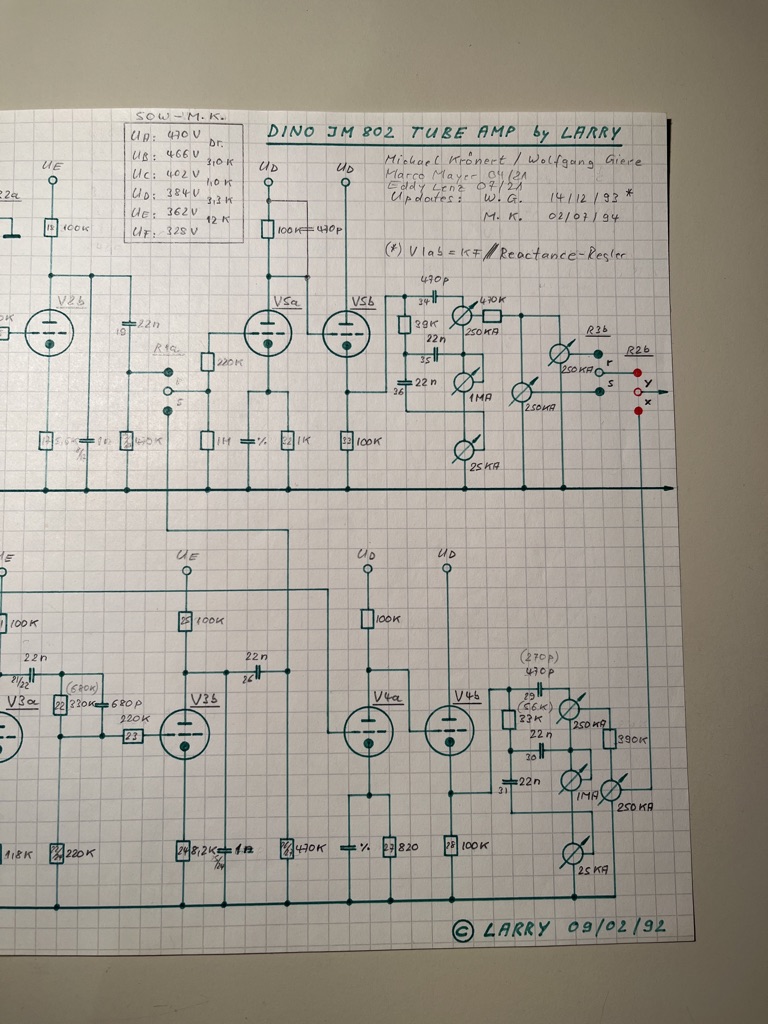 SOW - M.K.
UA: 470 V
Dr.
UB: 466 V
3,0 K
UC: 402 V
1,0 K
UD: 384 V
3,3 K
UE: 362 V
12 K
UF: 328 V
DINO JM 802 TUBE AMP by LARRY
Michael Krönert / Wolfgang Giere
Marco Mayer 04/21
Eddy Lenz 07/21
Updates: W. G. 14/12/93 *
M. K. 02/07/94
(*) V1ab = KF // Reactance-Regler
UE
UD
UD
22a
18
100K
100K
470p
V2b
V5a
V5b
22n
19
R1a
r
s
220K
470p
34
470K
250KA
39K
22n
35
22n
36
1MA
25KA
250KA
250KA
R3b
r
s
R2b
y
x
5,6K
470K
1M
%
32
1K
33
100K
UE
UE
UD
UD
100K
25
100K
100K
22n
21/22
V3a
(680K)
22
330K
680p
220K
23
V3b
22n
26
V4a
V4b
(270p)
470p
29
(56K)
33K
250KA
390K
22n
30
22n
31
1MA
250KA
25KA
1,8K
220K
24
8,2K
470K
%
27
820
28
100K
© LARRY 09/02/92